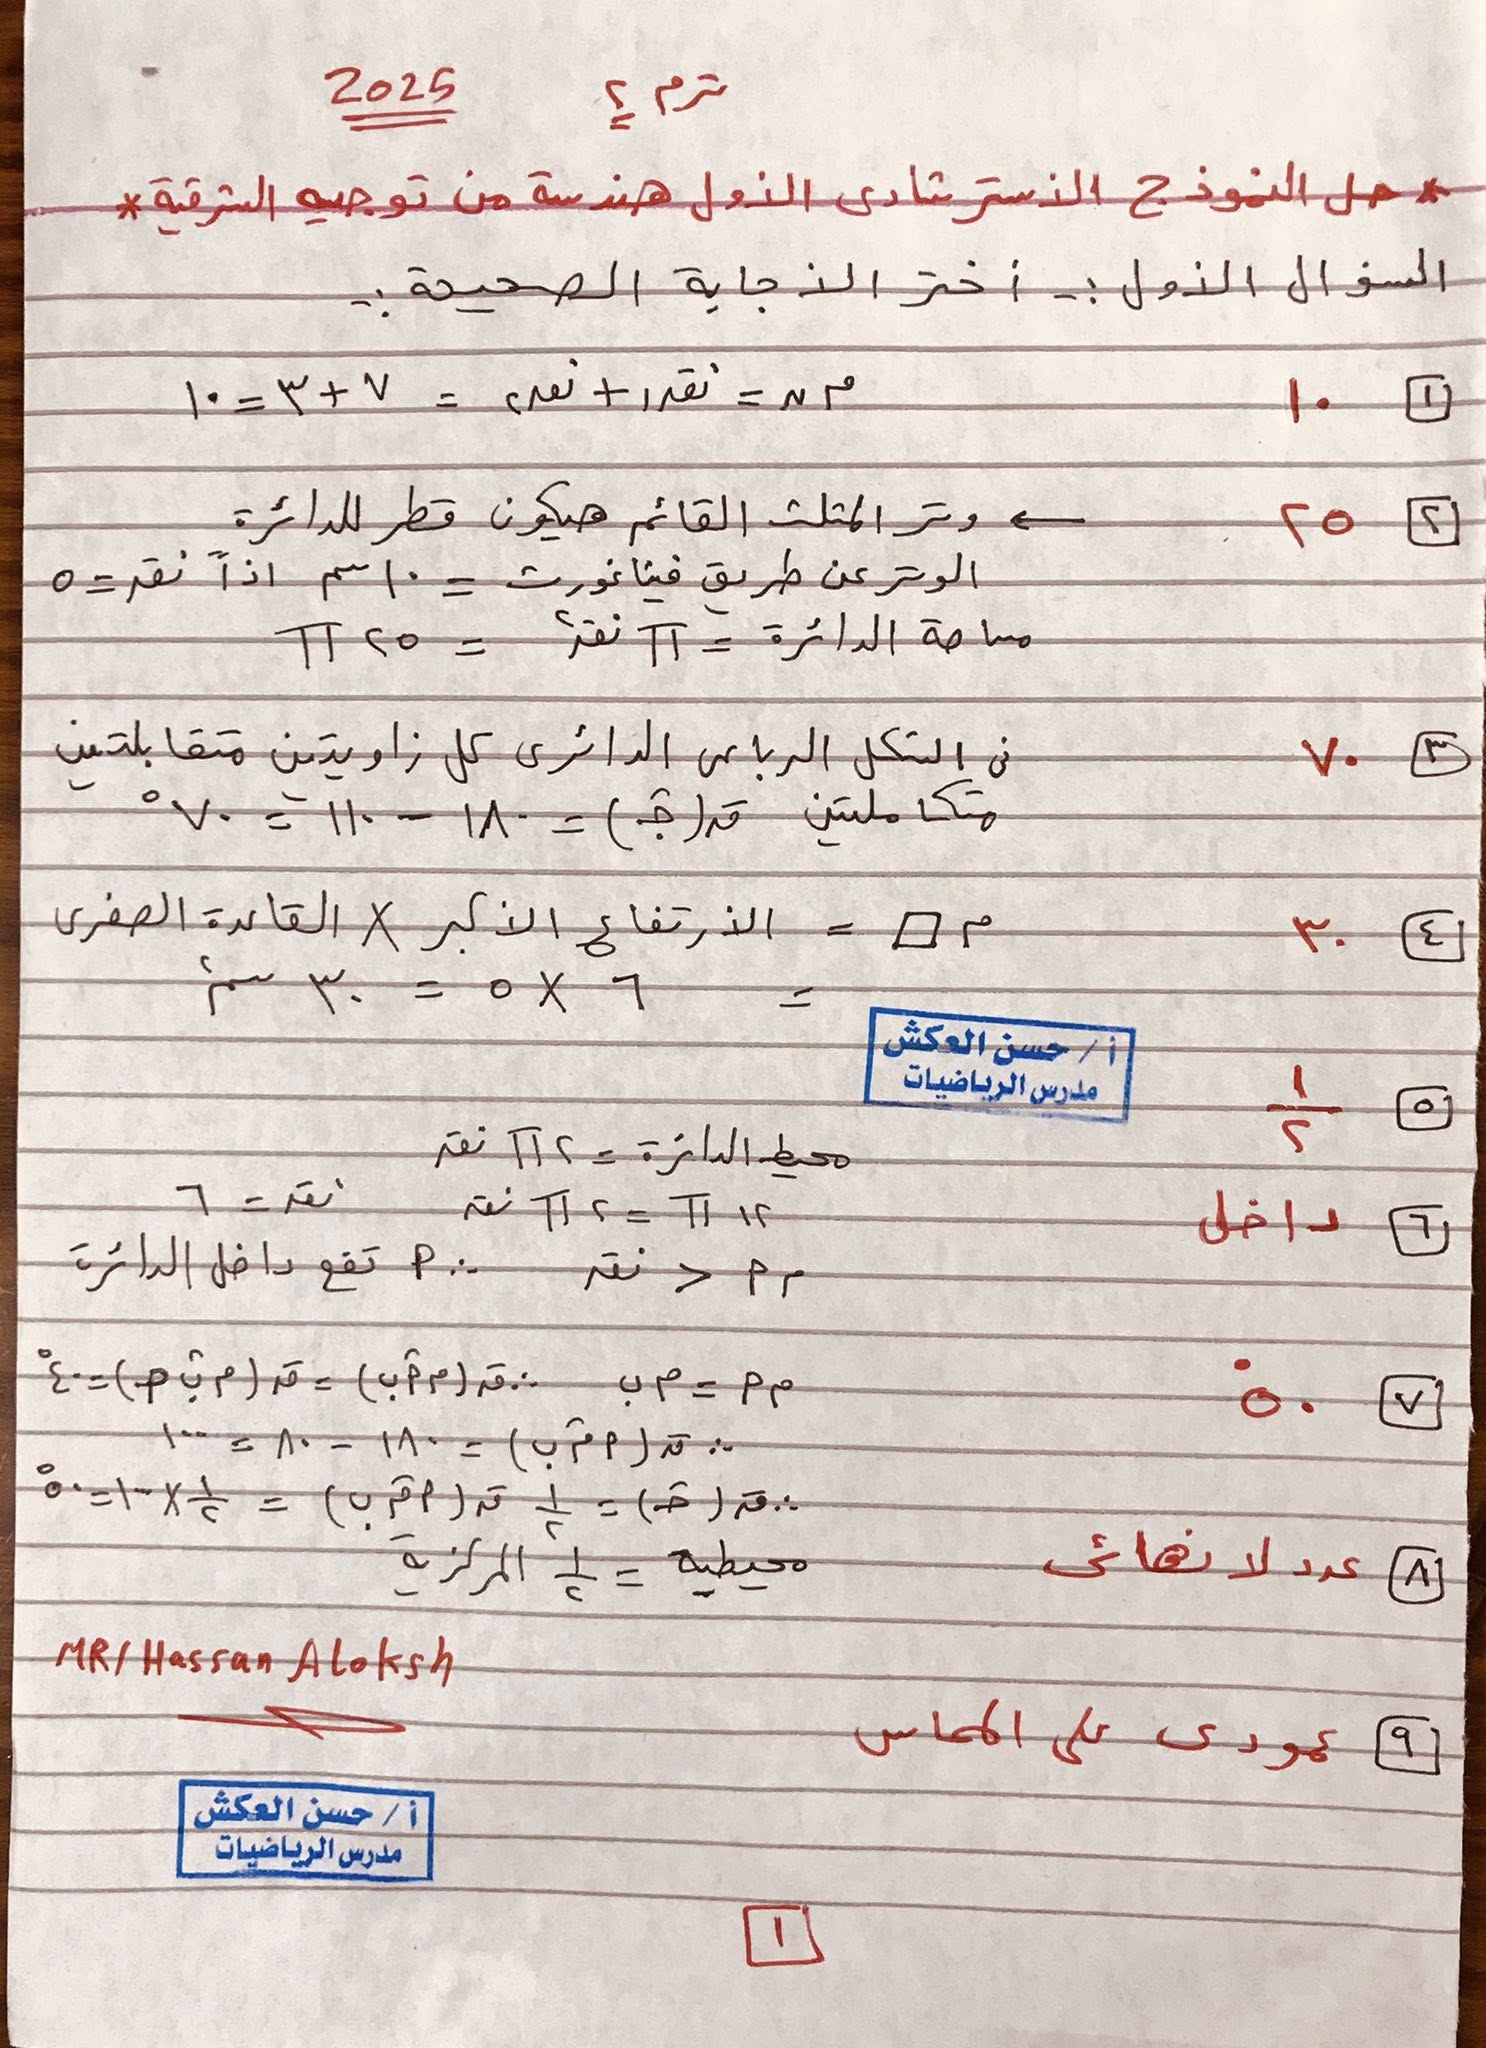 ترم ٢ 2025
* حل النموذج الاسترشادى الأول هندسة من توجيه الشرقية *
السؤال الأول :- أختر الاجابة الصحيحة :-
١ ١٠ م ن = نق١ + نق٢ = ٧ + ٣ = ١٠
٢ ٢٥ ← وتر المثلث القائم هيكون قطر للدائرة
الوتر عن طريق فيثاغورث = ١٠ سم اذاً نق = ٥
مساحة الدائرة = π نق٢ = ٢٥ π
٣ ٧٠ فى الشكل الرباعى الدائرى كل زاويتين متقابلتين
متكاملتين ق(جـ) = ١٨٠ - ١١٠ = ٧٠°
٤ ٣٠ م ▱ = الارتفاع الأكبر × القاعدة الصغرى
= ٦ × ٥ = ٣٠ سم٢
أ / حسن العكش
مدرس الرياضيات
٥ ١/٢
محيط الدائرة = ٢ π نق
٦ داخل ١٢ π = ٢ π نق نق = ٦
م أ < نق ∴ أ تقع داخل الدائرة
٧ ٥٠° م أ = م ب ∴ ق(م أ ب) = ق(م ب أ) = ٤٠°
∴ ق(أ م ب) = ١٨٠ - ٨٠ = ١٠٠
∴ ق(جـ) = ١/٢ ق(أ م ب) = ١/٢ × ١٠٠ = ٥٠°
محيطية = ١/٢ المركزية
٨ عدد لا نهائى
MR/ Hassan Aloksh
٩ عمودى على المماس
أ / حسن العكش
مدرس الرياضيات
١